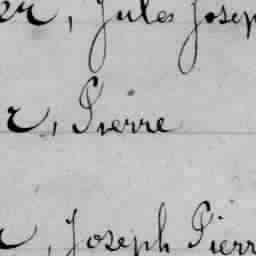 er, Jules Josep
r, Pierre
r, Joseph Pierr